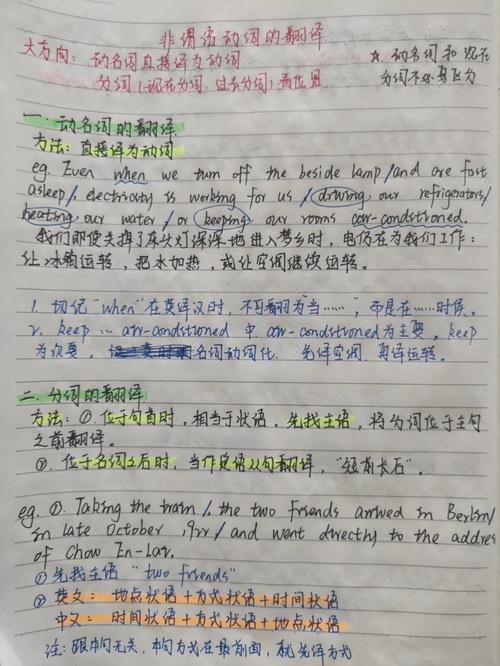 非谓语动词的翻译
大方向：动名词直接译为动词
分词（现在分词，过去分词）看位置
☆ 动名词和现在
分词不必要区分
一、动名词的翻译
方法：直接译为动词
eg. Even when we turn off the beside lamp/and are fast
asleep/, electricity is working for us/driving our refrigerators/
heating our water/or keeping our rooms air-condstioned.
我们即使关掉了床头灯深深地进入梦乡时，电仍在为我们工作：
让冰箱运转，把水加热，或让空调继续运转。
1. 切记“when”在英译汉时，不可翻为“当……”，而是在……时候。
2. keep … air-condstioned 中 air-condstioned为主要，keep
为次要，名词动词化. 先译空调，再译运转。
二、分词的翻译
方法：①. 位于句首时，相当于状语，先找主语，将分词位于主句
之前翻译。
②. 位于名词之后时，当作定语从句翻译，“短前长后”。
eg. ①. Taking the train/, the two friends arrived in Berlin/
in late October 1922/and went directly to the addres
of Chow En-Lai.
①先找主语“two friends”
②英文：地点状语+方式状语+时间状语
中文：时间状语+方式状语+地点状语
注：跟本句无关，本句方式在最前面，就先译方式